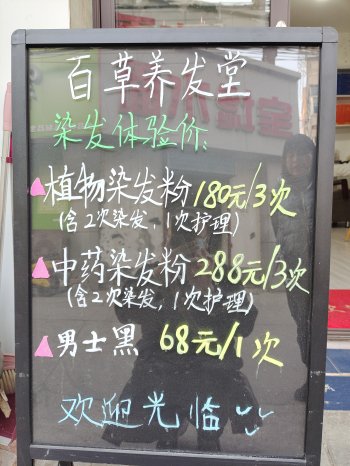 百草养发堂
染发体验价:
植物染发粉 180元/3次
(含2次染发,1次护理)
中药染发粉 288元/3次
(含2次染发,1次护理)
男士黑 68元/1次
欢迎光临